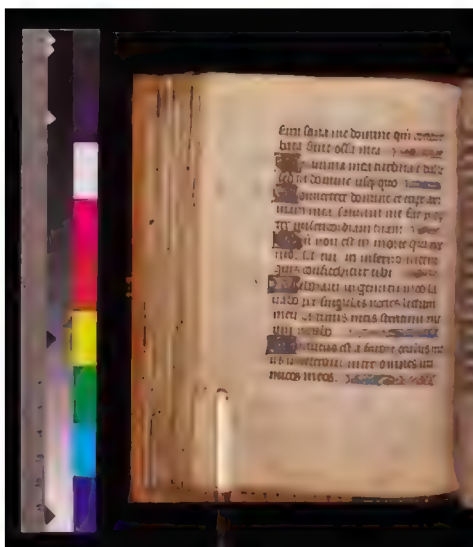 sum sana me domine
bata sunt ossa mea
anima mea turbata e valde
sed tu domine usq quo
Conuertere domine et eripe ani
mam mea saluum me fac prop
ter misericordiam tuam
non est in morte qui me
sit tui in inferno autem
quis confitebitur tibi
Laboraui in gemitu meo la
uabo per singulas noctes lectum
meu lacrimis meis stratum me
um rigabo
Turbatus est a furore oculus me
us inueteraui inter omnes ini
micos meos.